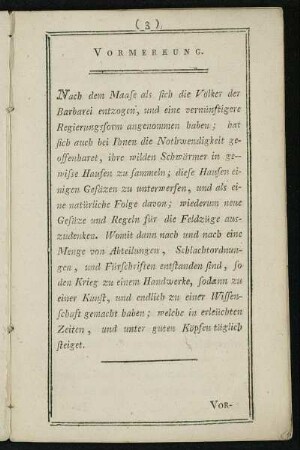 ( 3 )
VORMERKUNG.
Nach dem Maaße als sich die Völker der
Barbarei entzogen, und eine vernünftigere
Regierungsform angenommen haben; hat
sich auch bei Ihnen die Nothwendigkeit ge-
offenbaret, ihre wilden Schwärmer in ge-
wisse Haufen zu sammeln; diese Haufen ei-
nigen Gesäzen zu unterwerfen, und als ei-
ne natürliche Folge davon; wiederum neue
Gesäze und Regeln für die Feldzüge aus-
zudenken. Womit dann nach und nach eine
Menge von Abteilungen, Schlachtordnun-
gen, und Fürschriften entstanden sind, so
den Krieg zu einem Handwerke, sodann zu
einer Kunst, und endlich zu einer Wissen-
schaft gemacht haben; welche in erleuchten
Zeiten, und unter guten Köpfen täglich
steiget.
VOR-